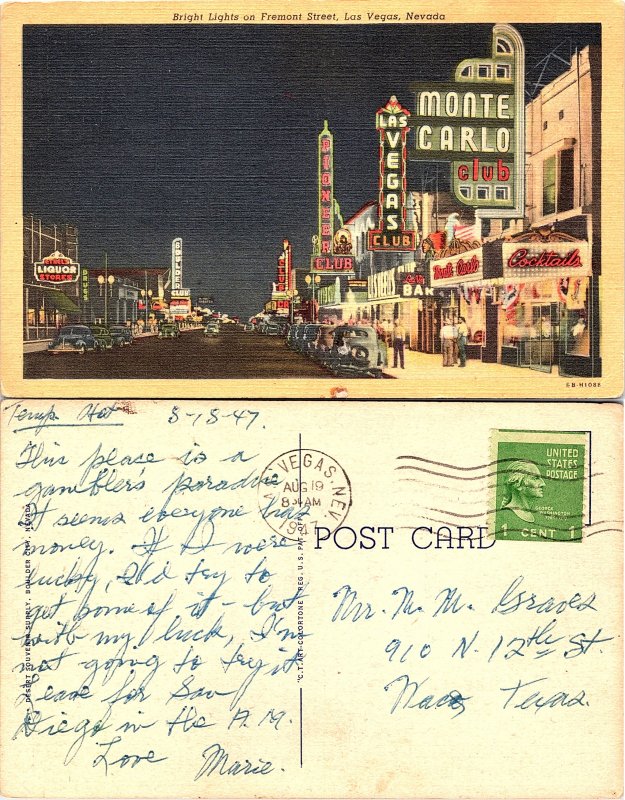 Bright Lights on Fremont Street, Las Vegas, Nevada
MONTE
CARLO
club
LAS
VEGAS
CLUB
PIONEER
CLUB
LIQUOR
STORES
DRUGS
BOULDER
CLUB
Monte Carlo
Cocktails
BAR
6B-H1088
Temp Hot 8-18-47.
This place is a
gambler's paradise
It seems everyone has
money. If I were
lucky, I'd try to
get some of it - but
with my luck, I'm
not going to try it
Leave for San
Diego in the A.M.
Love
Marie.
DESERT SOUVENIR SUPPLY, BOULDER CITY, NEVADA
"C.T. ART-COLORTONE" REG. U.S. PAT. OFF.
LAS VEGAS, NEV.
AUG 19
8 30 AM
1947
POST CARD
UNITED
STATES
POSTAGE
GEORGE
WASHINGTON
1 CENT 1
Mr. M. M. Graves
910 N. 12th St.
Waco, Texas.